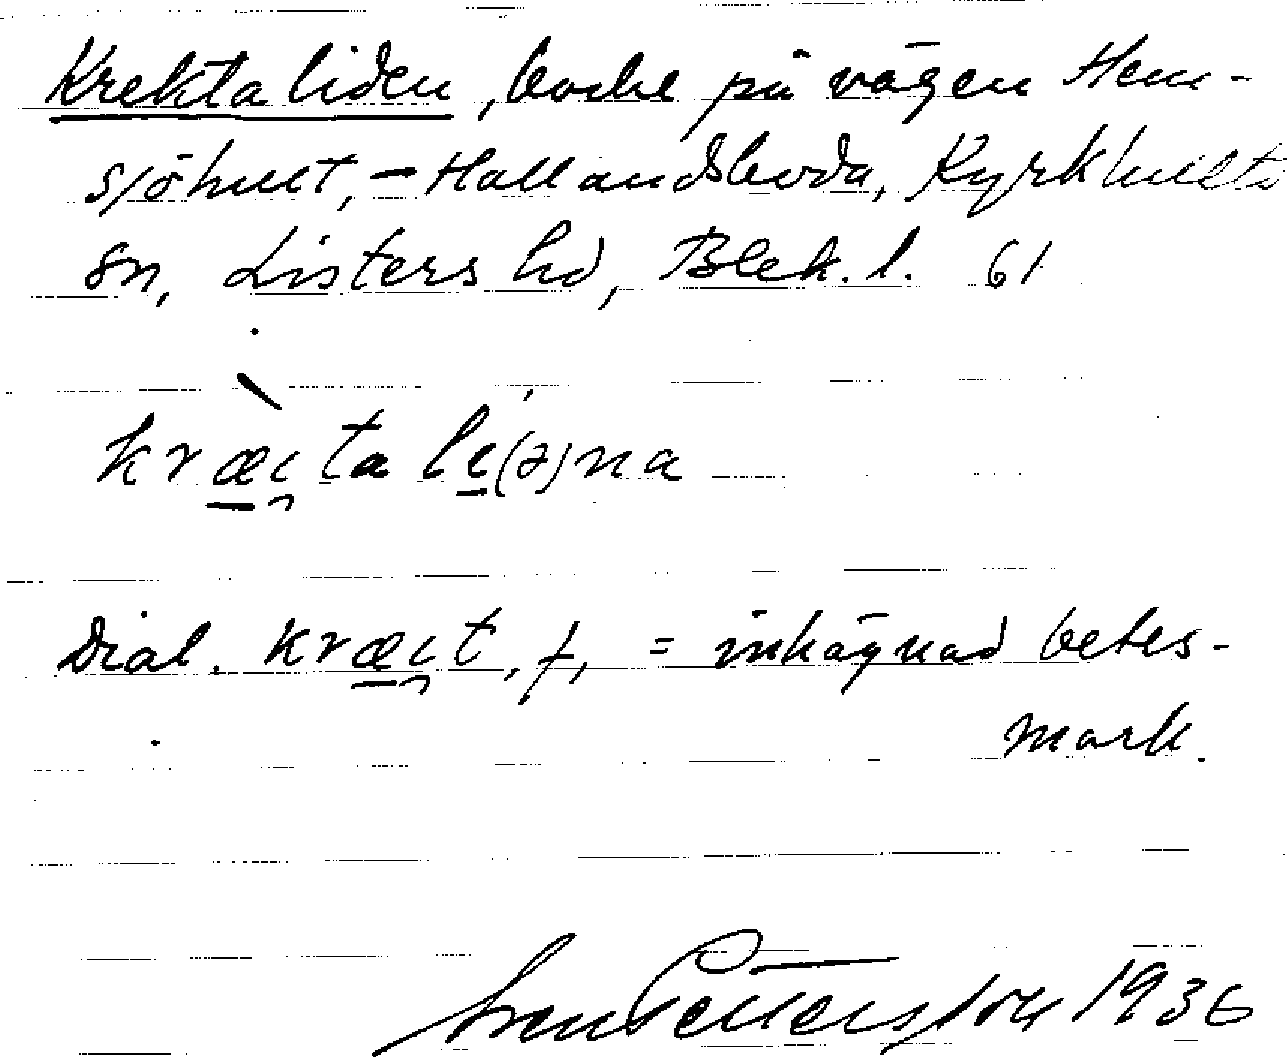 Krektaliden, backe på vägen Hem-
sjöhult, - Hallandsboda, Kyrkhults
sn, Listers hd, Blek. l. 61
kræi̯ta li(ə)na
Dial. kræi̯t, f, = inhägnad betes-
mark.
Sven Pettersson 1936